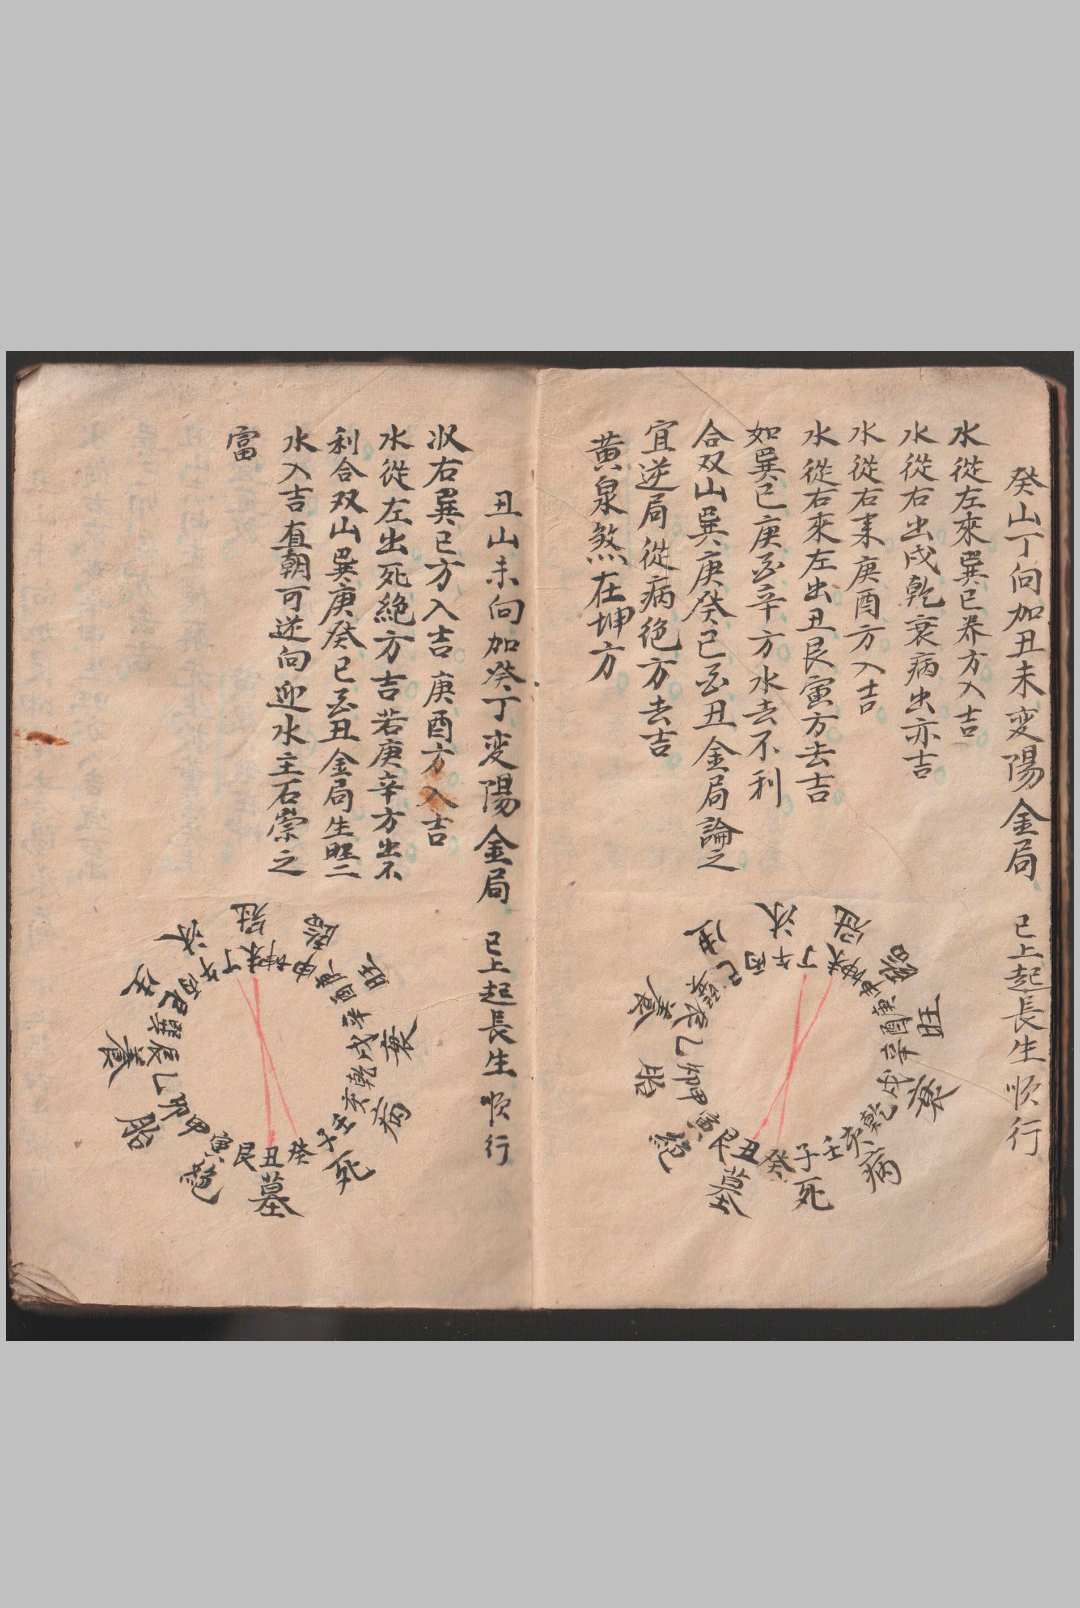 癸山丁向加丑未变陽金局 巳上起長生順行
水從左來巽巳养方入吉
水從右出戌乾衰病出亦吉
水從右来庚酉方入吉
水從右來左出丑艮寅方去吉
如巽巳庚酉辛方水去不利
合双山巽庚癸巳酉丑金局論之
宜逆局從病绝方去吉
黄泉煞在坤方
沐 冠 临 旺 衰 病 死 墓 绝 胎 养 生
丙午丁未坤申庚酉辛戌乾亥壬子癸丑艮寅甲卯乙辰巽巳
丑山未向加癸丁变陽金局 巳上起長生順行
収右巽巳方入吉庚酉方入吉
水從左出死絶方吉若庚辛方出不
利合双山巽庚癸巳酉丑金局生旺二
水入吉直朝可逆向迎水主石崇之
富
沐 冠 临 旺 衰 病 死 墓 絶 胎 养 生
丙午丁未坤申庚酉辛戌乾亥壬子癸丑艮寅甲卯乙辰巽巳